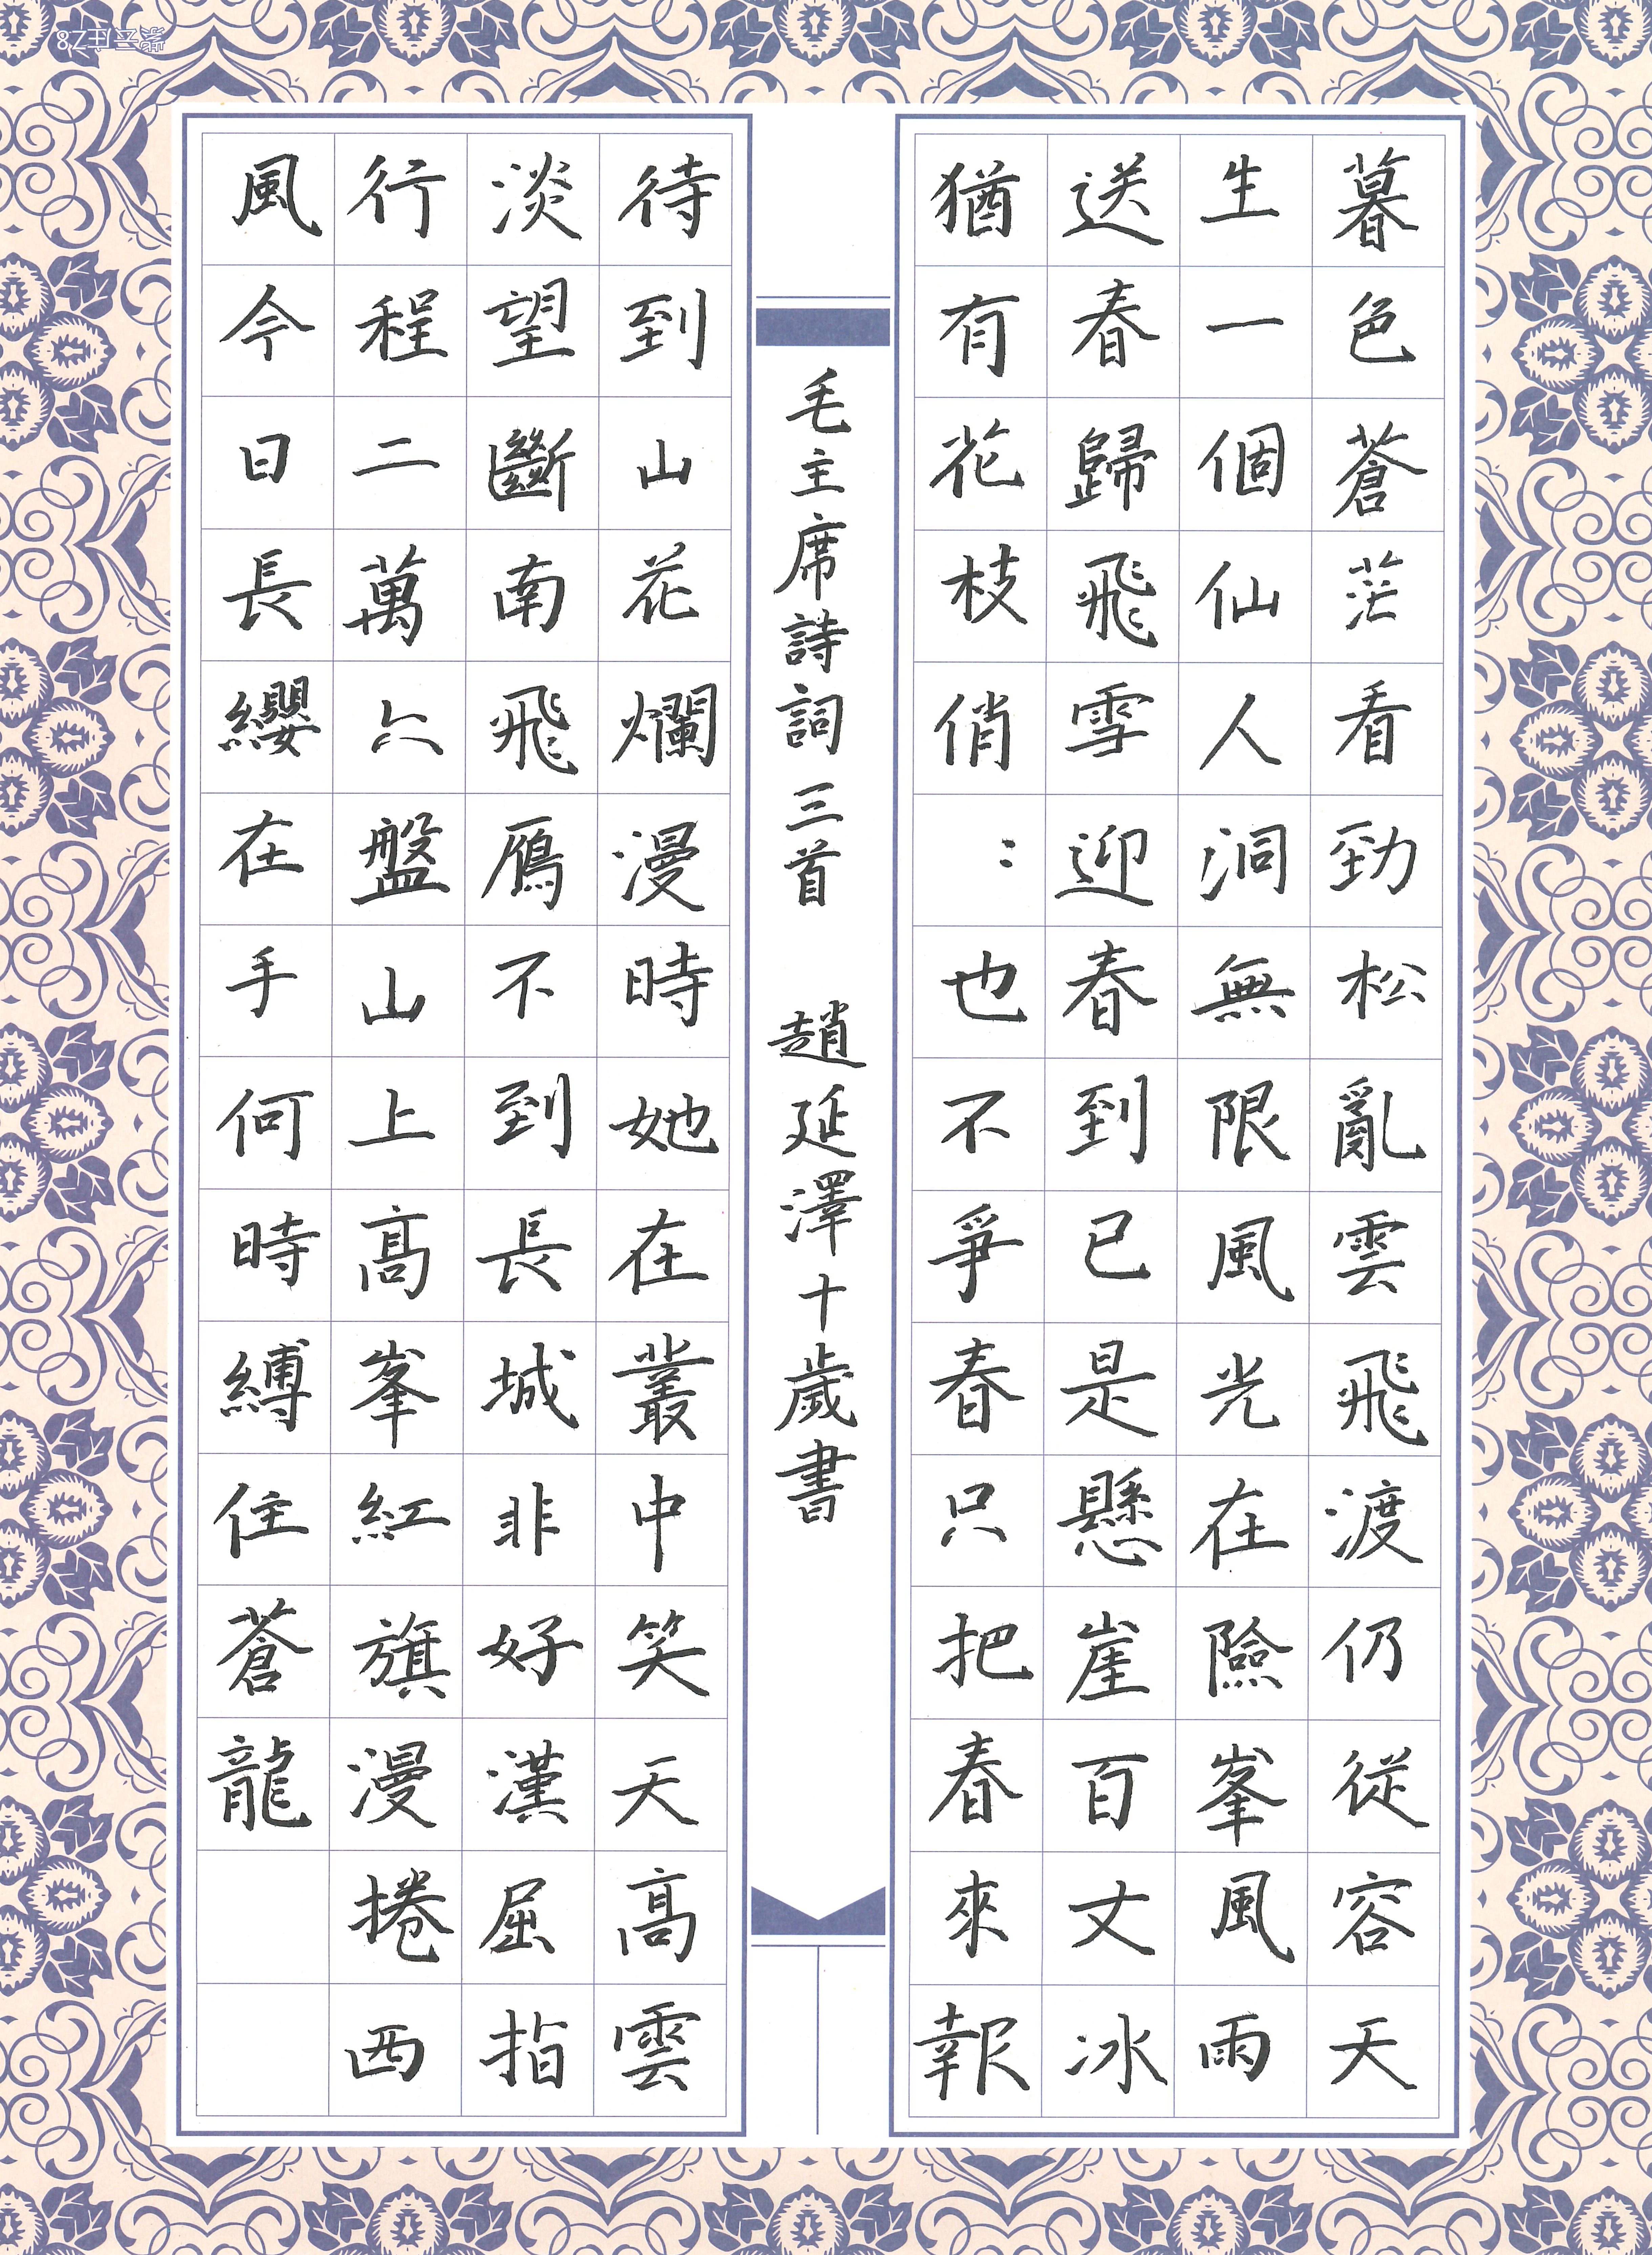 暮色蒼茫看勁松亂雲飛渡仍從容天
生一個仙人洞無限風光在險峯風雨
送春歸飛雪迎春到已是懸崖百丈冰
猶有花枝俏：也不爭春只把春來報
毛主席詩詞三首 趙延澤十歲書
待到山花爛漫時她在叢中笑天高雲
淡望斷南飛鴈不到長城非好漢屈指
行程二萬六盤山上高峯紅旗漫捲西
風今日長纓在手何時縛住蒼龍